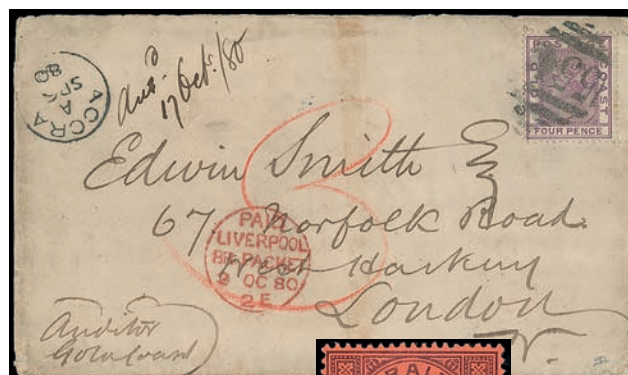 ACCRA
A
SP
80
Ansd
17 Oct./80
COAST
FOUR PENCE
Edwin Smith Esq
67 Norfolk Road
West Hackney
London
N.
PAID
LIVERPOOL
BR. PACKET
2 OC 80
2 E
Auditor
Gold Coast